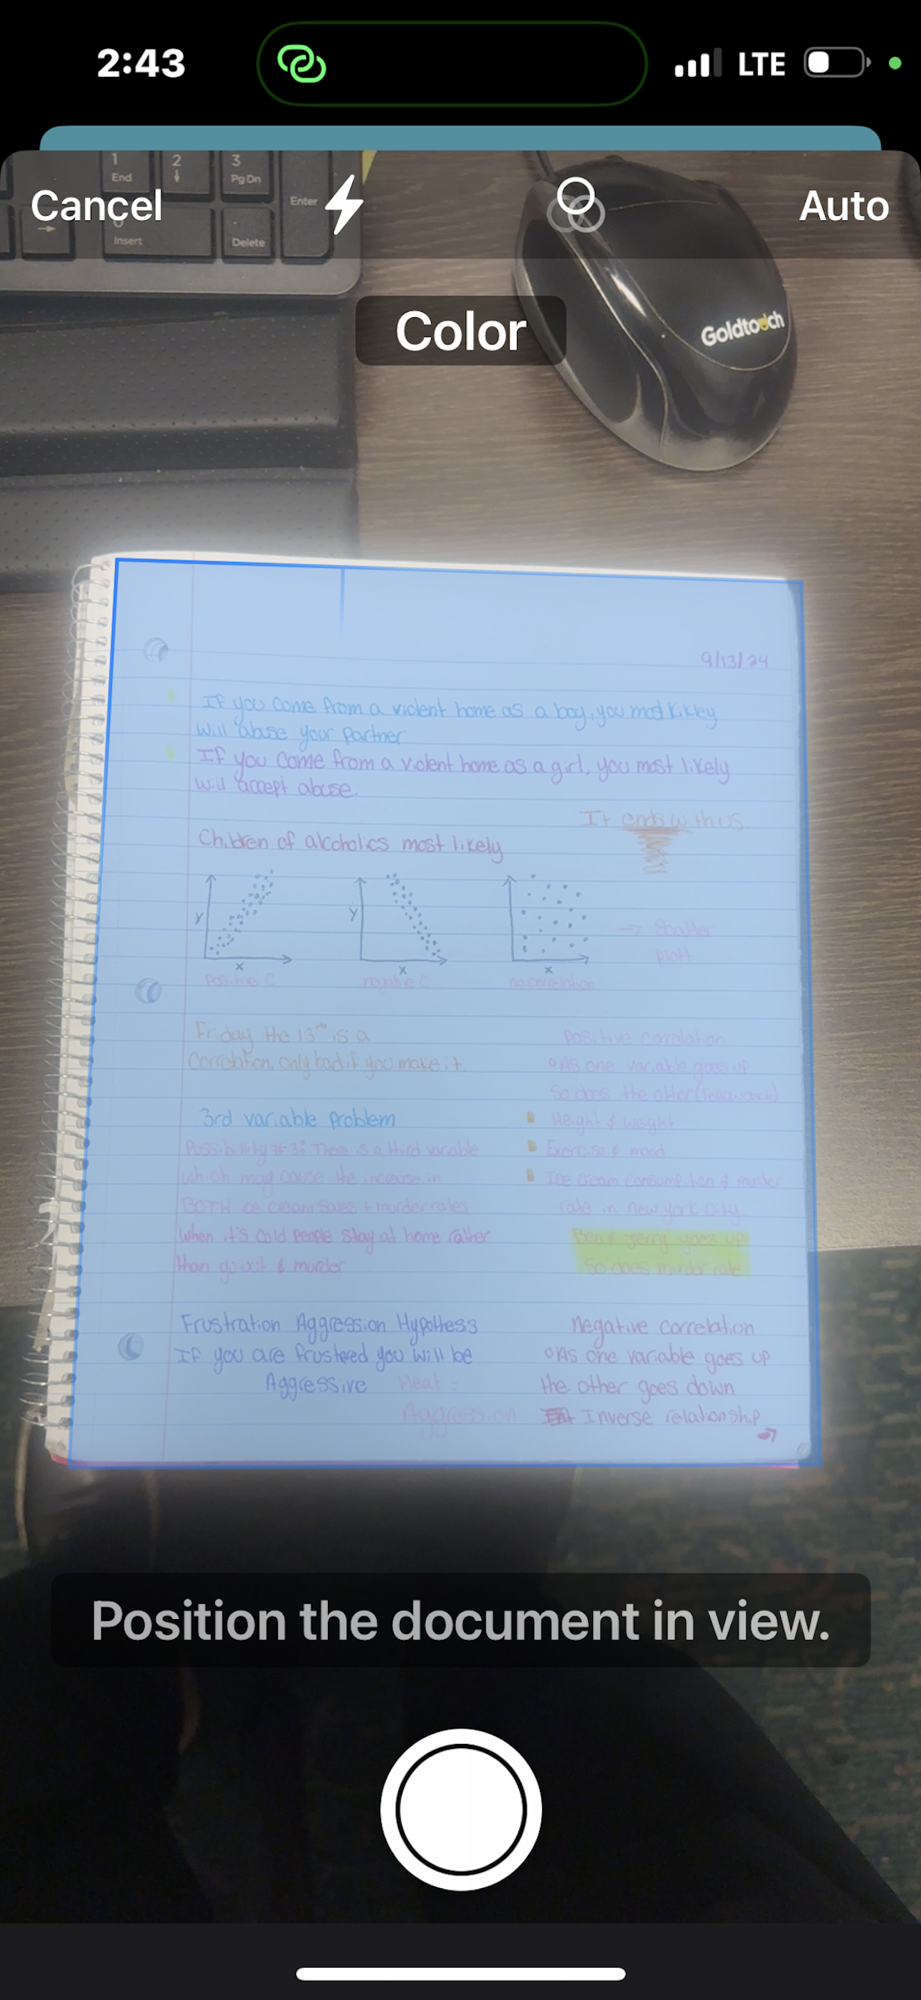 2:43
LTE
1
End
2
3
Pg Dn
Enter
Insert
Delete
Cancel
Auto
Color
Goldtouch
9/13/24
If you come from a violent home as a boy, you most likley
will abuse your partner
If you come from a violent home as a girl, you most likely
will accept abuse.
It ends with us
Children of alcoholics most likely
y
x
y
x
x
positive C
negative C
no correlation
Friday the 13th is a
Correlation, only bad if you make it
positive correlation
As one variable goes up
So does the other
3rd variable problem
Height & weight
Possibility #3: There is a third variable
Exercise & mood
which may cause the increase in
Ice cream consumption & murder
BOTH ice cream sales + murder rates
rate in new york city
when it's cold people stay at home rather
Ben & jerry goes up
than go out & murder
So does murder rate
Frustration Aggression Hypothess
negative correlation
If you are frustered you will be
As one variable goes up
Aggressive
Heat =
the other goes down
Aggression
Inverse relationship
Position the document in view.